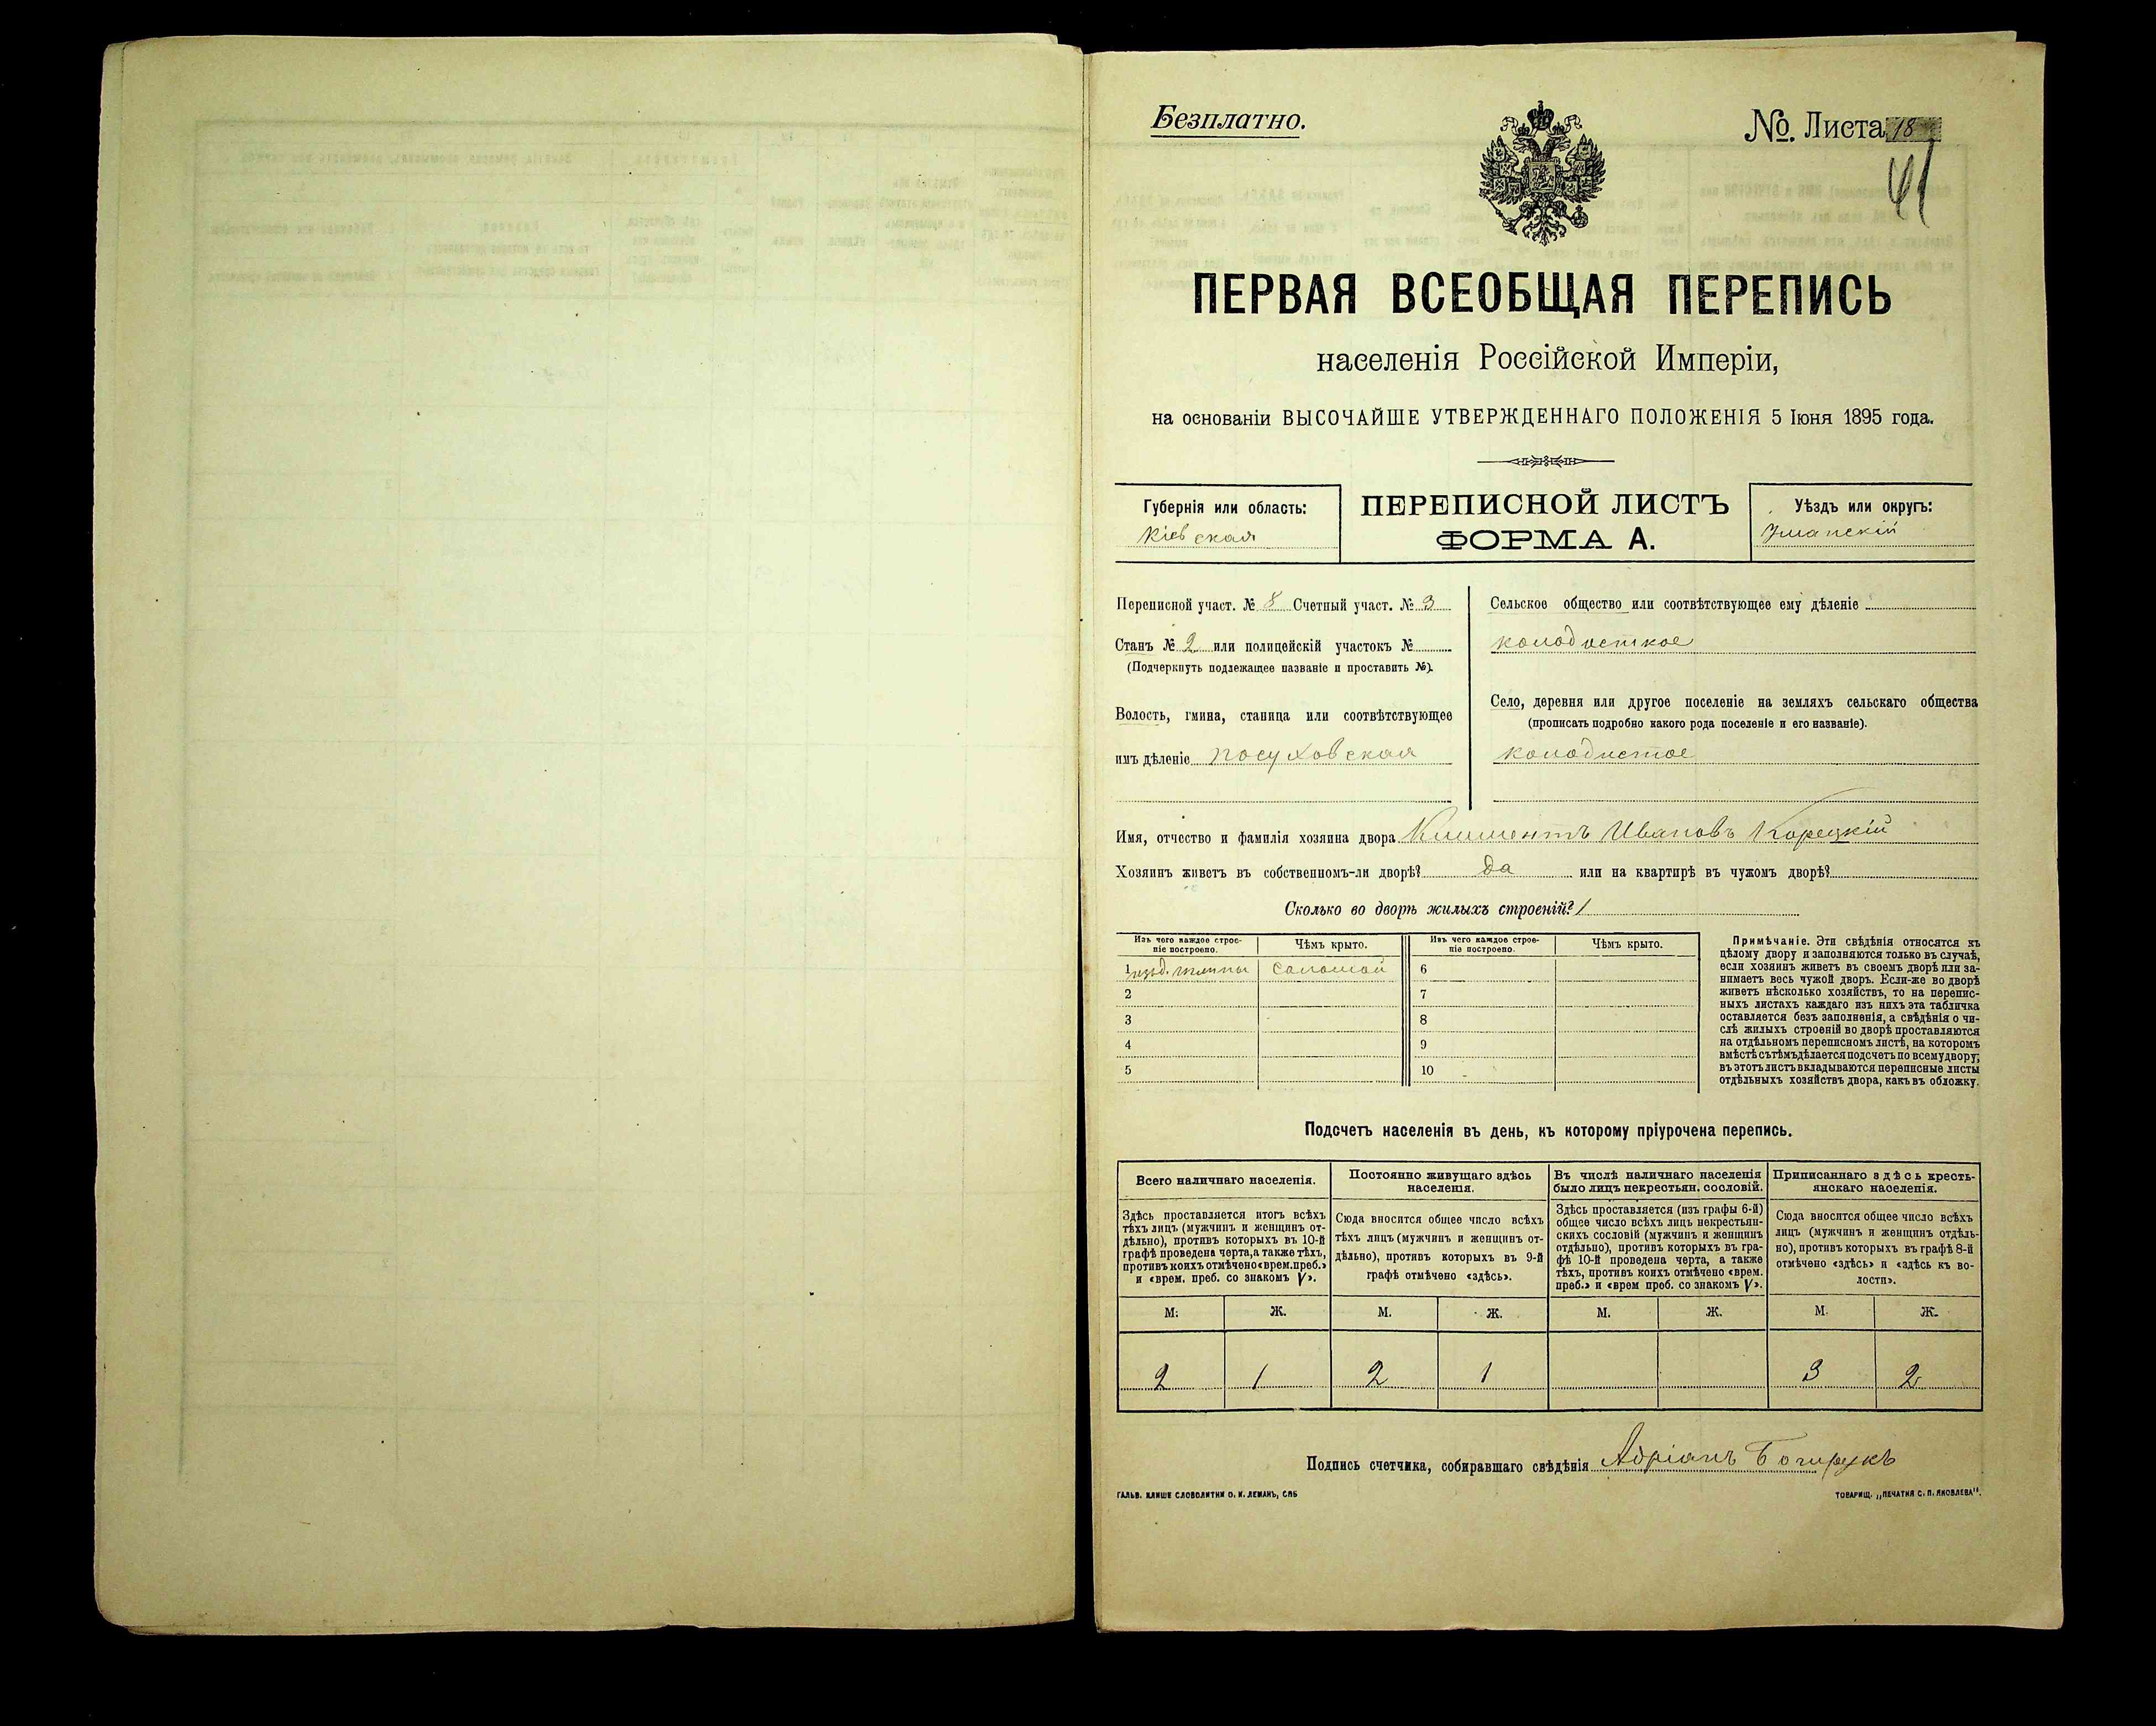 Безплатно.
№. Листа 18
41
ПЕРВАЯ ВСЕОБЩАЯ ПЕРЕПИСЬ
населенія Россійской Имперіи,
на основаніи ВЫСОЧАЙШЕ УТВЕРЖДЕННАГО ПОЛОЖЕНІЯ 5 Іюня 1895 года.
Губернія или область:
Кіевская
ПЕРЕПИСНОЙ ЛИСТЪ
ФОРМА А.
Уѣздъ или округъ:
Уманскій
Переписной участ. № 8 Счетный участ. № 3
Станъ № 2 или полицейскій участокъ №
(Подчеркнуть подлежащее названіе и проставить №).
Волость, гмина, станица или соотвѣтствующее
имъ дѣленіе посуховская
Сельское общество или соотвѣтствующее ему дѣленіе
колодисткое
Село, деревня или другое поселеніе на земляхъ сельскаго общества
(прописать подробно какого рода поселеніе и его названіе).
колодистое
Имя, отчество и фамилія хозяина двора Климентъ Ивановъ Корецкій
Хозяинъ живетъ въ собственномъ-ли дворѣ? да или на квартирѣ въ чужомъ дворѣ?
Сколько во дворѣ жилыхъ строеній? 1
Изъ чего каждое строе-
ніе построено.
Чѣмъ крыто.
Изъ чего каждое строе-
ніе построено.
Чѣмъ крыто.
1 глины соломой 6
2 7
3 8
4 9
5 10
Примѣчаніе. Эти свѣдѣнія относятся къ
цѣлому двору и заполняются только въ случаѣ,
если хозяинъ живетъ въ своемъ дворѣ или за-
нимаетъ весь чужой дворъ. Если-же во дворѣ
живетъ нѣсколько хозяйствъ, то на перепис-
ныхъ листахъ каждаго изъ нихъ эта табличка
оставляется безъ заполненія, а свѣдѣнія о чи-
слѣ жилыхъ строеній во дворѣ проставляются
на отдѣльномъ переписномъ листѣ, на которомъ
вмѣстѣ съ тѣмъ дѣлается подсчетъ по всему двору;
въ этотъ листъ вкладываются переписные листы
отдѣльныхъ хозяйствъ двора, какъ въ обложку.
Подсчетъ населенія въ день, къ которому пріурочена перепись.
Всего наличнаго населенія.
Здѣсь проставляется итогъ всѣхъ
тѣхъ лицъ (мужчинъ и женщинъ от-
дѣльно), противъ которыхъ въ 10-й
графѣ проведена черта, а также тѣхъ,
противъ коихъ отмѣчено «врем. преб.»
и «врем. преб. со знакомъ V».
Постоянно живущаго здѣсь
населенія.
Сюда вносится общее число всѣхъ
тѣхъ лицъ (мужчинъ и женщинъ от-
дѣльно), противъ которыхъ въ 9-й
графѣ отмѣчено «здѣсь».
Въ числѣ наличнаго населенія
было лицъ некрестьян. сословій.
Здѣсь проставляется (изъ графы 6-й)
общее число всѣхъ лицъ некрестьян-
скихъ сословій (мужчинъ и женщинъ
отдѣльно), противъ которыхъ въ гра-
фѣ 10-й проведена черта, а также
тѣхъ, противъ коихъ отмѣчено «врем.
преб.» и «врем преб. со знакомъ V».
Приписаннаго здѣсь кресть-
янскаго населенія.
Сюда вносится общее число всѣхъ
лицъ (мужчинъ и женщинъ отдѣль-
но), противъ которыхъ въ графѣ 8-й
отмѣчено «здѣсь» и «здѣсь къ во-
лости».
М. Ж. М. Ж. М. Ж. М. Ж.
2 1 2 1 3 2
Подпись счетчика, собиравшаго свѣдѣнія Адріанъ
ГАЛЬВ. КЛИШЕ СЛОВОЛИТНИ О. И. ЛЕМАНЪ, СПБ
ТОВАРИЩ. „ПЕЧАТНЯ С. П. ЯКОВЛЕВА".